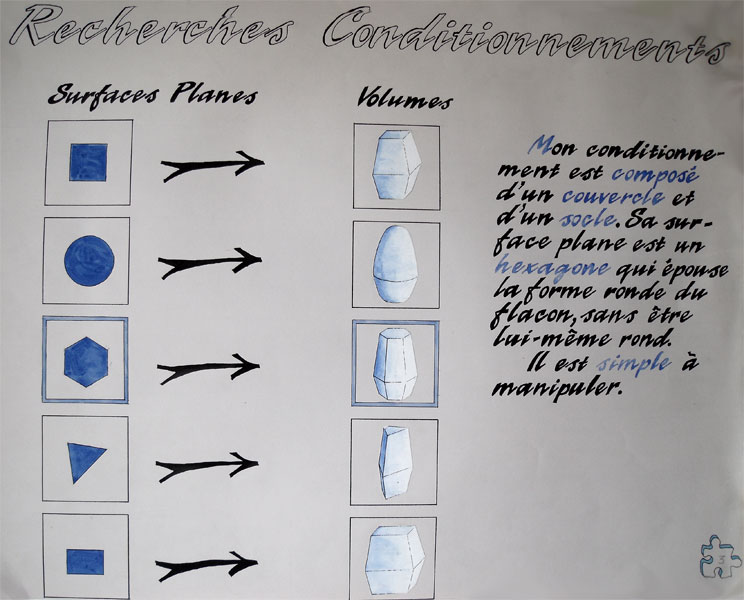 Recherches Conditionnements
Surfaces Planes
Volumes
Mon conditionne-
ment est composé
d'un couvercle et
d'un socle. Sa sur-
face plane est un
hexagone qui épouse
la forme ronde du
flacon, sans être
lui-même rond.
Il est simple à
manipuler.
3